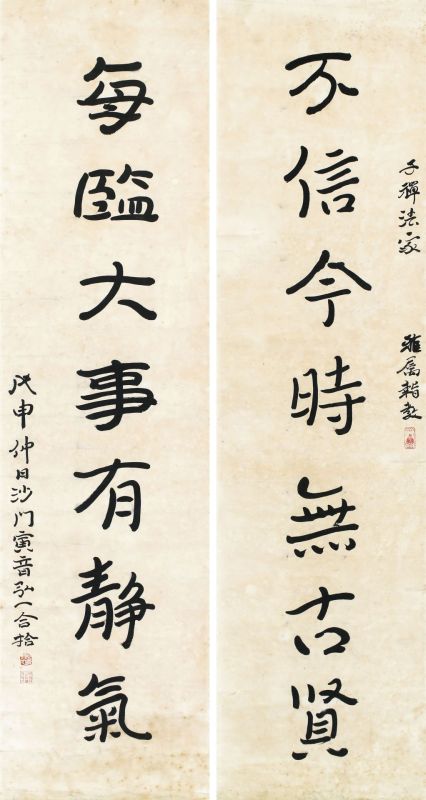 子禪法家 雅屬教
不信今時無古賢
每臨大事有靜氣
戊申仲日沙門寅音弘一合拾